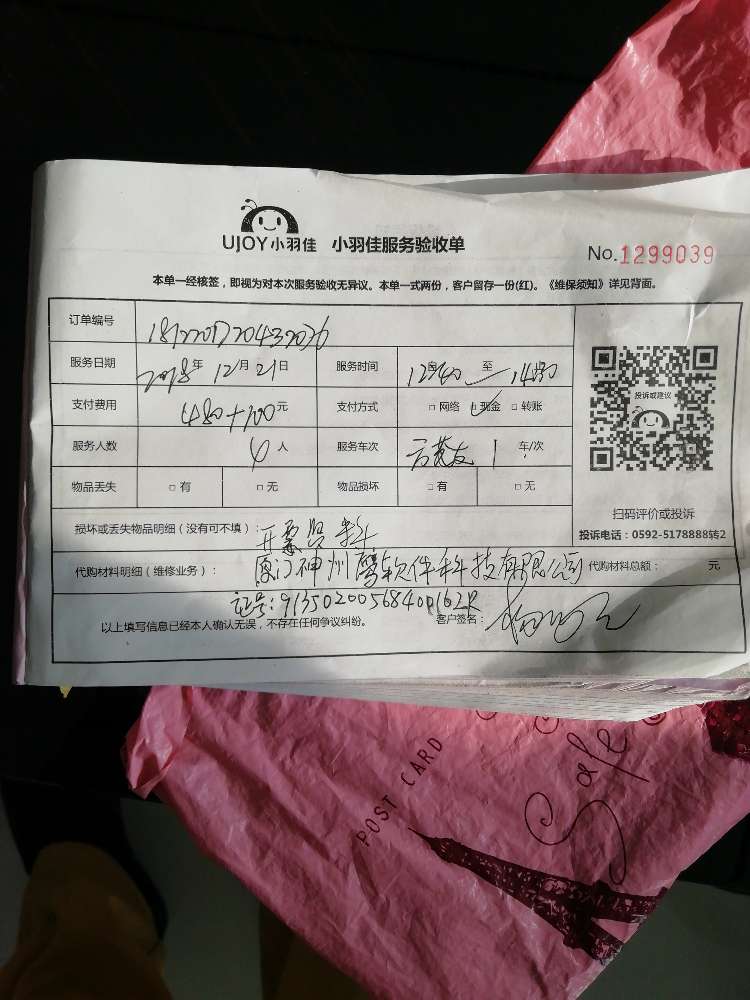 UJOY小羽佳 小羽佳服务验收单
No.1299039
本单一经核签，即视为对本次服务验收无异议。本单一式两份，客户留存一份(红)。《维保须知》详见背面。
订单编号
服务日期 2018年12月21日 服务时间 至
支付费用 480+100元 支付方式 □网络 □现金 □转账
服务人数 4人 服务车次 1 车/次
物品丢失 □有 □无 物品损坏 □有 □无
投诉或建议
扫码评价或投诉
投诉电话：0592-5178888转2
损坏或丢失物品明细（没有可不填）：开票资料
代购材料明细（维修业务）：厦门神州鹰软件科技有限公司 代购材料总额： 元
证号:
以上填写信息已经本人确认无误，不存在任何争议纠纷。 客户签名：
POST CARD
Safe